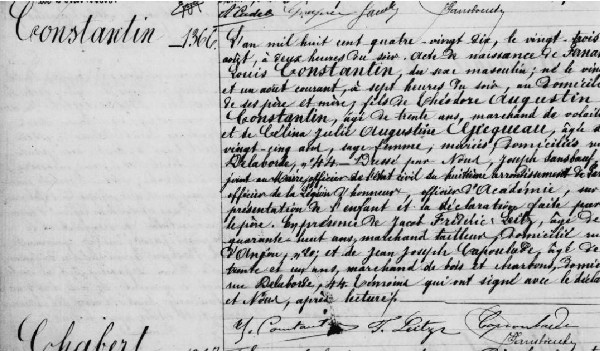 Constantin
1366.
L'an mil huit cent quatre-vingt dix, le vingt-trois
août, à deux heures du soir. Acte de naissance de Fernand
Louis Constantin, du sexe masculin; né le vingt
et un août courant, à sept heures du soir, au domicile
de ses père et mère; fils de Théodore Augustin
Constantin, âgé de trente ans, marchand de volailles
et de Célina Julie Augustine, âgée de
vingt-cinq ans, sage femme, mariés, domiciliés rue
Delaborde, n° 44. Dressé par Nous, Joseph
joint au Maire, officier de l'état civil du huitième arrondissement de Paris
officier de la Légion d'honneur, officier d'Académie, sur
présentation de l'enfant et la déclaration faite par
le père. En présence de Jacob Frédéric, âgé de
quarante-huit ans, marchand tailleur, domicilié rue
d'Anjou, n° 20; et de Jean Joseph, âgé de
trente et un ans, marchand de bois et charbons, domicilié
rue Delaborde, 44. Témoins qui ont signé avec le décla
et Nous, après lecture.
Constant
Chabert